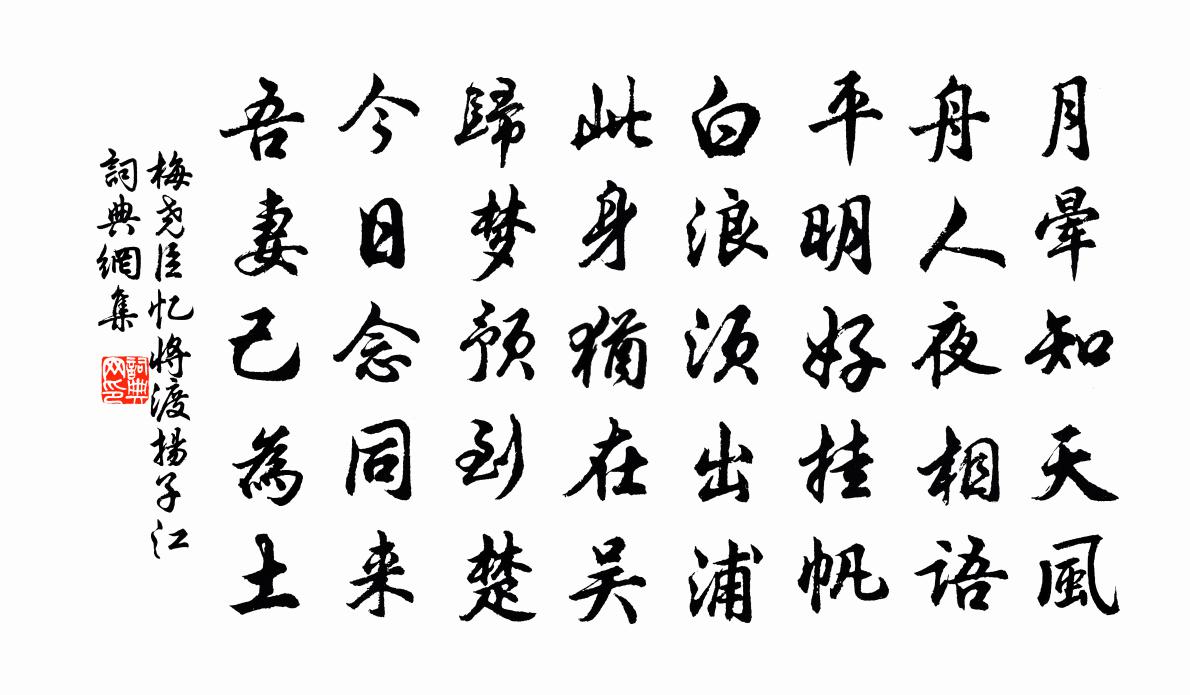 月暈知天風
舟人夜相語
平明好挂帆
白浪须出浦
此身猶在吴
歸梦预到楚
今日念同来
吾妻己為土
梅尧臣忆将渡揚子江
詞典網集
詞典
网印